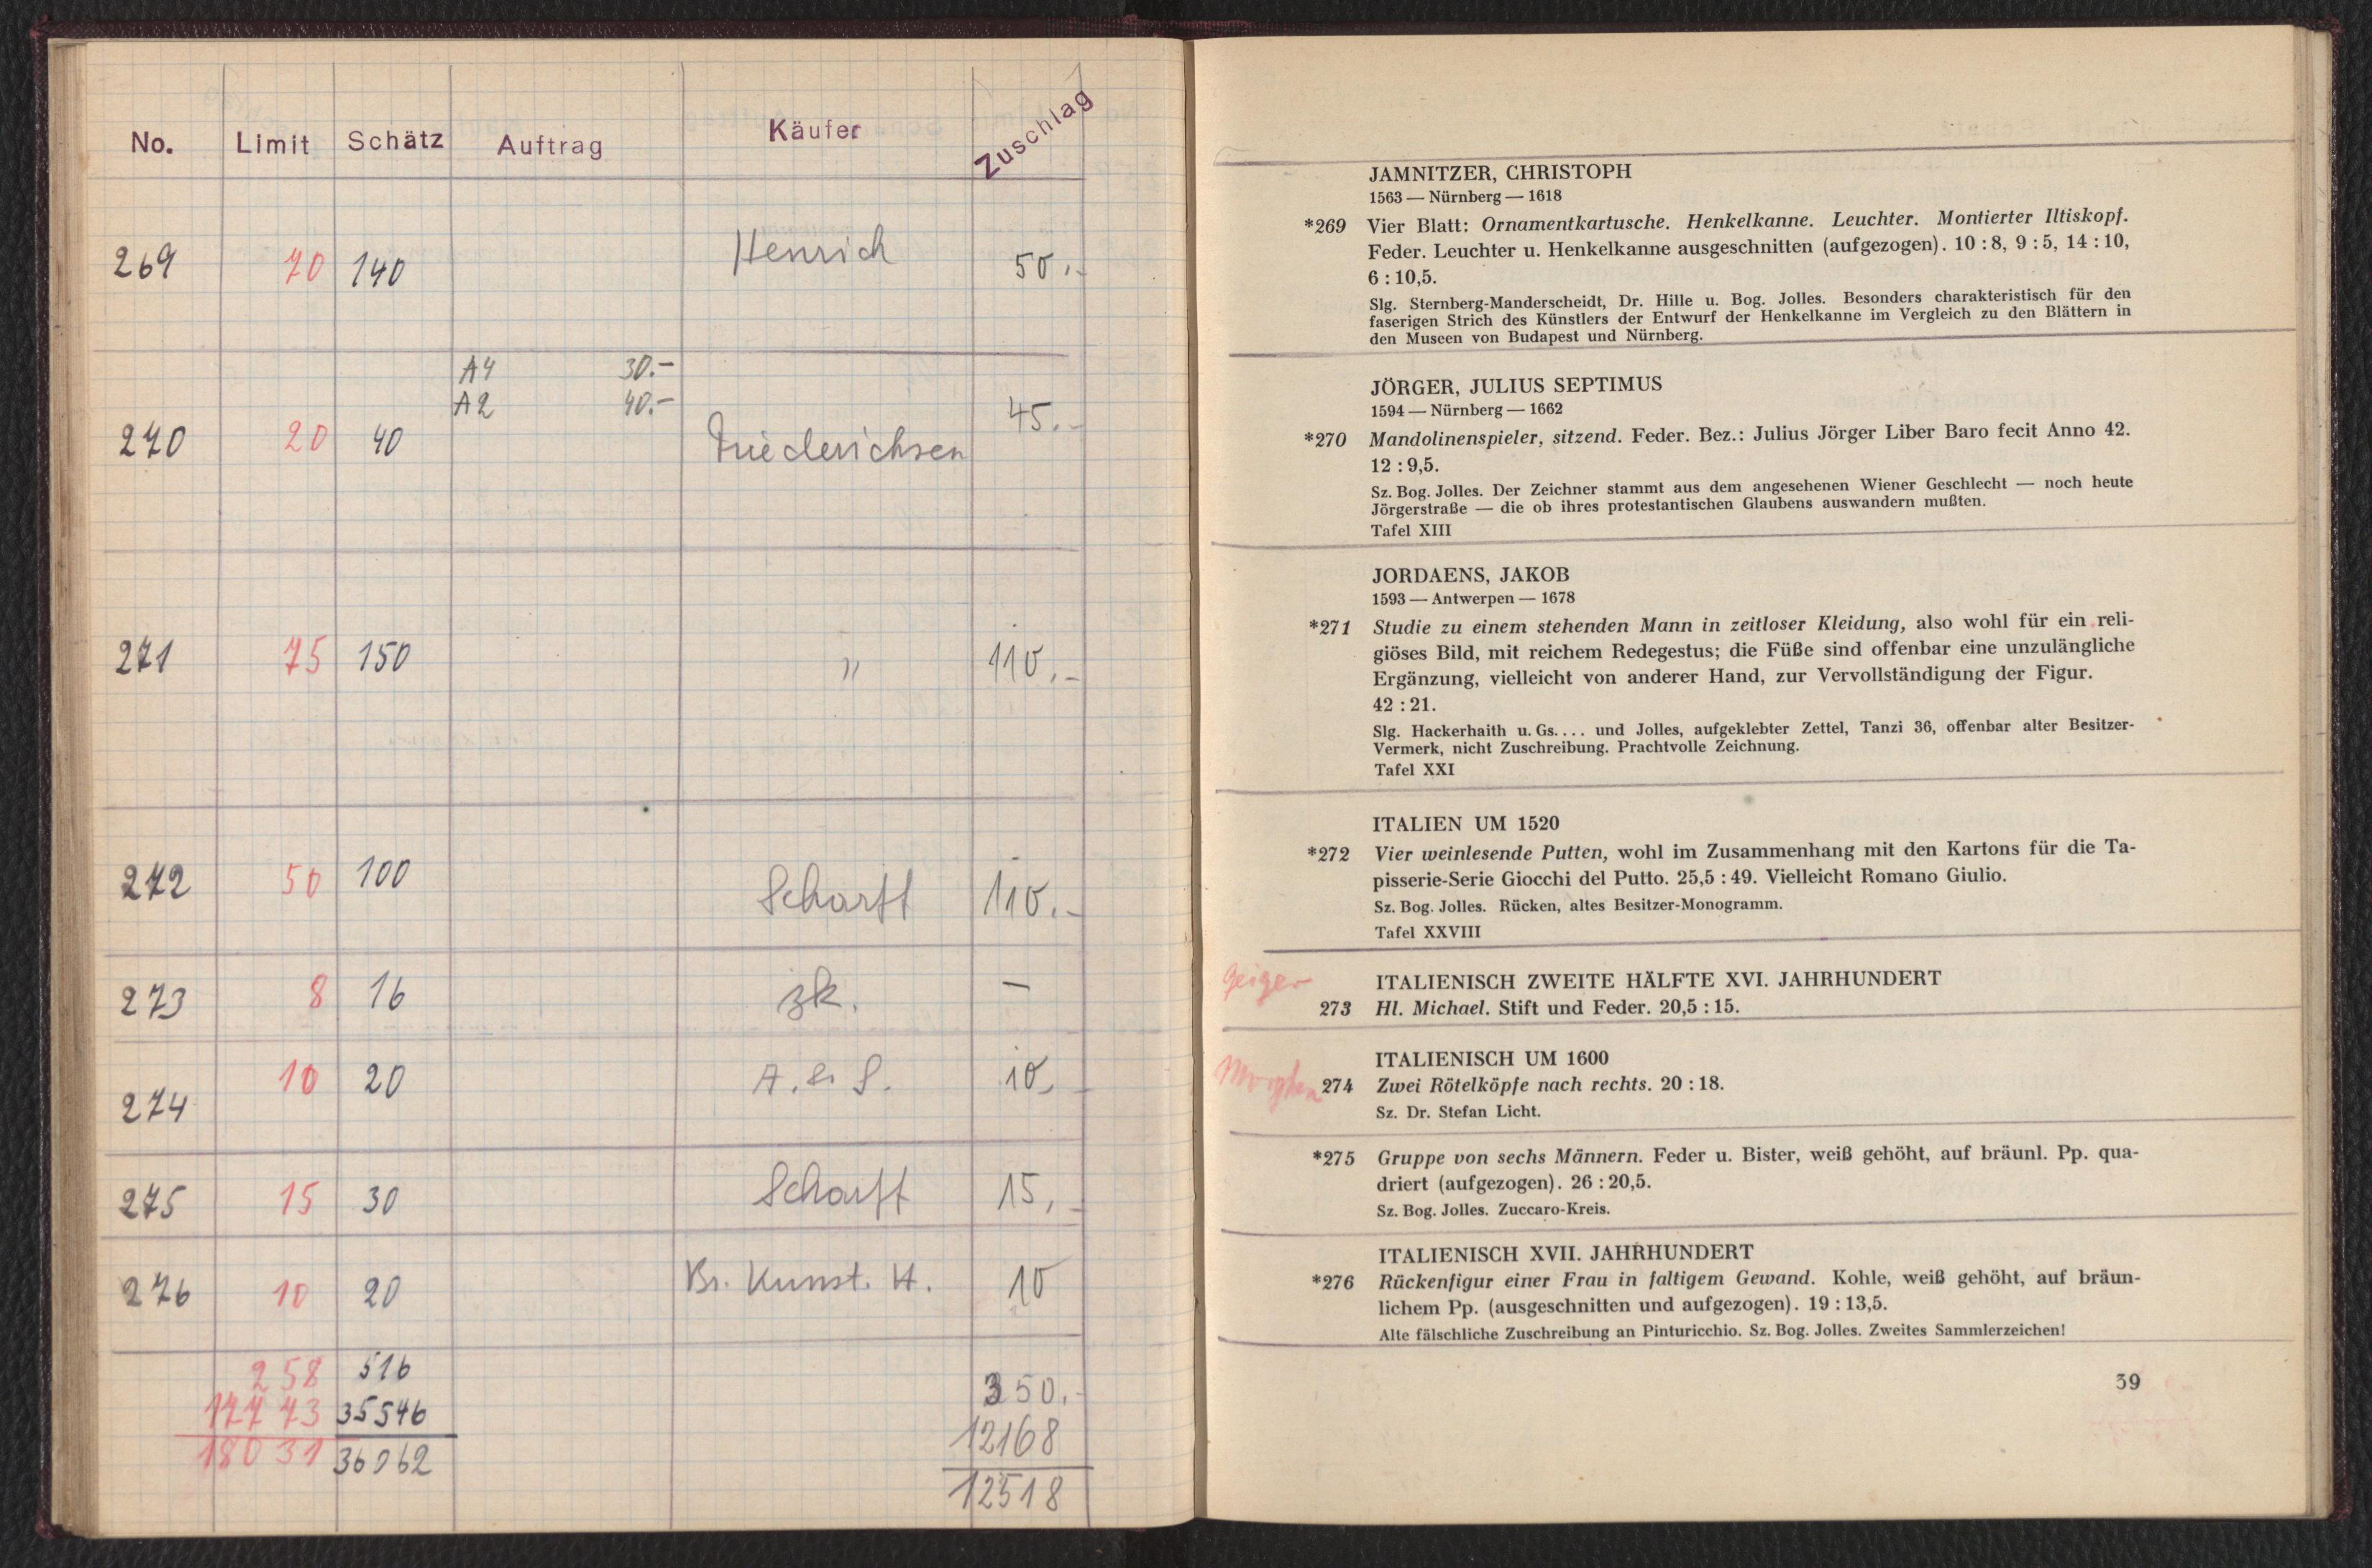 No. Limit Schätz Auftrag Käufer Zuschlag
269 70 140 Henrich 50.-
A4 30.-
A2 40.-
270 20 40 Friederichsen 45.-
271 75 150 " 110.-
272 50 100 Scharff 110.-
273 8 16 zk. —
274 10 20 A. & S. 10,-
275 15 30 Scharff 15,-
276 10 20 Br. Kunst. H. 10
258 516 350.-
17773 35546 12168
18031 36062 12518
JAMNITZER, CHRISTOPH
1563 — Nürnberg — 1618
*269 Vier Blatt: Ornamentkartusche. Henkelkanne. Leuchter. Montierter Iltiskopf.
Feder. Leuchter u. Henkelkanne ausgeschnitten (aufgezogen). 10 : 8, 9 : 5, 14 : 10,
6 : 10,5.
Slg. Sternberg-Manderscheidt, Dr. Hille u. Bog. Jolles. Besonders charakteristisch für den
faserigen Strich des Künstlers der Entwurf der Henkelkanne im Vergleich zu den Blättern in
den Museen von Budapest und Nürnberg.
JÖRGER, JULIUS SEPTIMUS
1594 — Nürnberg — 1662
*270 Mandolinenspieler, sitzend. Feder. Bez.: Julius Jörger Liber Baro fecit Anno 42.
12 : 9,5.
Sz. Bog. Jolles. Der Zeichner stammt aus dem angesehenen Wiener Geschlecht — noch heute
Jörgerstraße — die ob ihres protestantischen Glaubens auswandern mußten.
Tafel XIII
JORDAENS, JAKOB
1593 — Antwerpen — 1678
*271 Studie zu einem stehenden Mann in zeitloser Kleidung, also wohl für ein reli-
giöses Bild, mit reichem Redegestus; die Füße sind offenbar eine unzulängliche
Ergänzung, vielleicht von anderer Hand, zur Vervollständigung der Figur.
42 : 21.
Slg. Hackerhaith u. Gs.... und Jolles, aufgeklebter Zettel, Tanzi 36, offenbar alter Besitzer-
Vermerk, nicht Zuschreibung. Prachtvolle Zeichnung.
Tafel XXI
ITALIEN UM 1520
*272 Vier weinlesende Putten, wohl im Zusammenhang mit den Kartons für die Ta-
pisserie-Serie Giocchi del Putto. 25,5 : 49. Vielleicht Romano Giulio.
Sz. Bog. Jolles. Rücken, altes Besitzer-Monogramm.
Tafel XXVIII
Geiger
ITALIENISCH ZWEITE HÄLFTE XVI. JAHRHUNDERT
273 Hl. Michael. Stift und Feder. 20,5 : 15.
ITALIENISCH UM 1600
274 Zwei Rötelköpfe nach rechts. 20 : 18.
Sz. Dr. Stefan Licht.
*275 Gruppe von sechs Männern. Feder u. Bister, weiß gehöht, auf bräunl. Pp. qua-
driert (aufgezogen). 26 : 20,5.
Sz. Bog. Jolles. Zuccaro-Kreis.
ITALIENISCH XVII. JAHRHUNDERT
*276 Rückenfigur einer Frau in faltigem Gewand. Kohle, weiß gehöht, auf bräun-
lichem Pp. (ausgeschnitten und aufgezogen). 19 : 13,5.
Alte fälschliche Zuschreibung an Pinturicchio. Sz. Bog. Jolles. Zweites Sammlerzeichen!
39